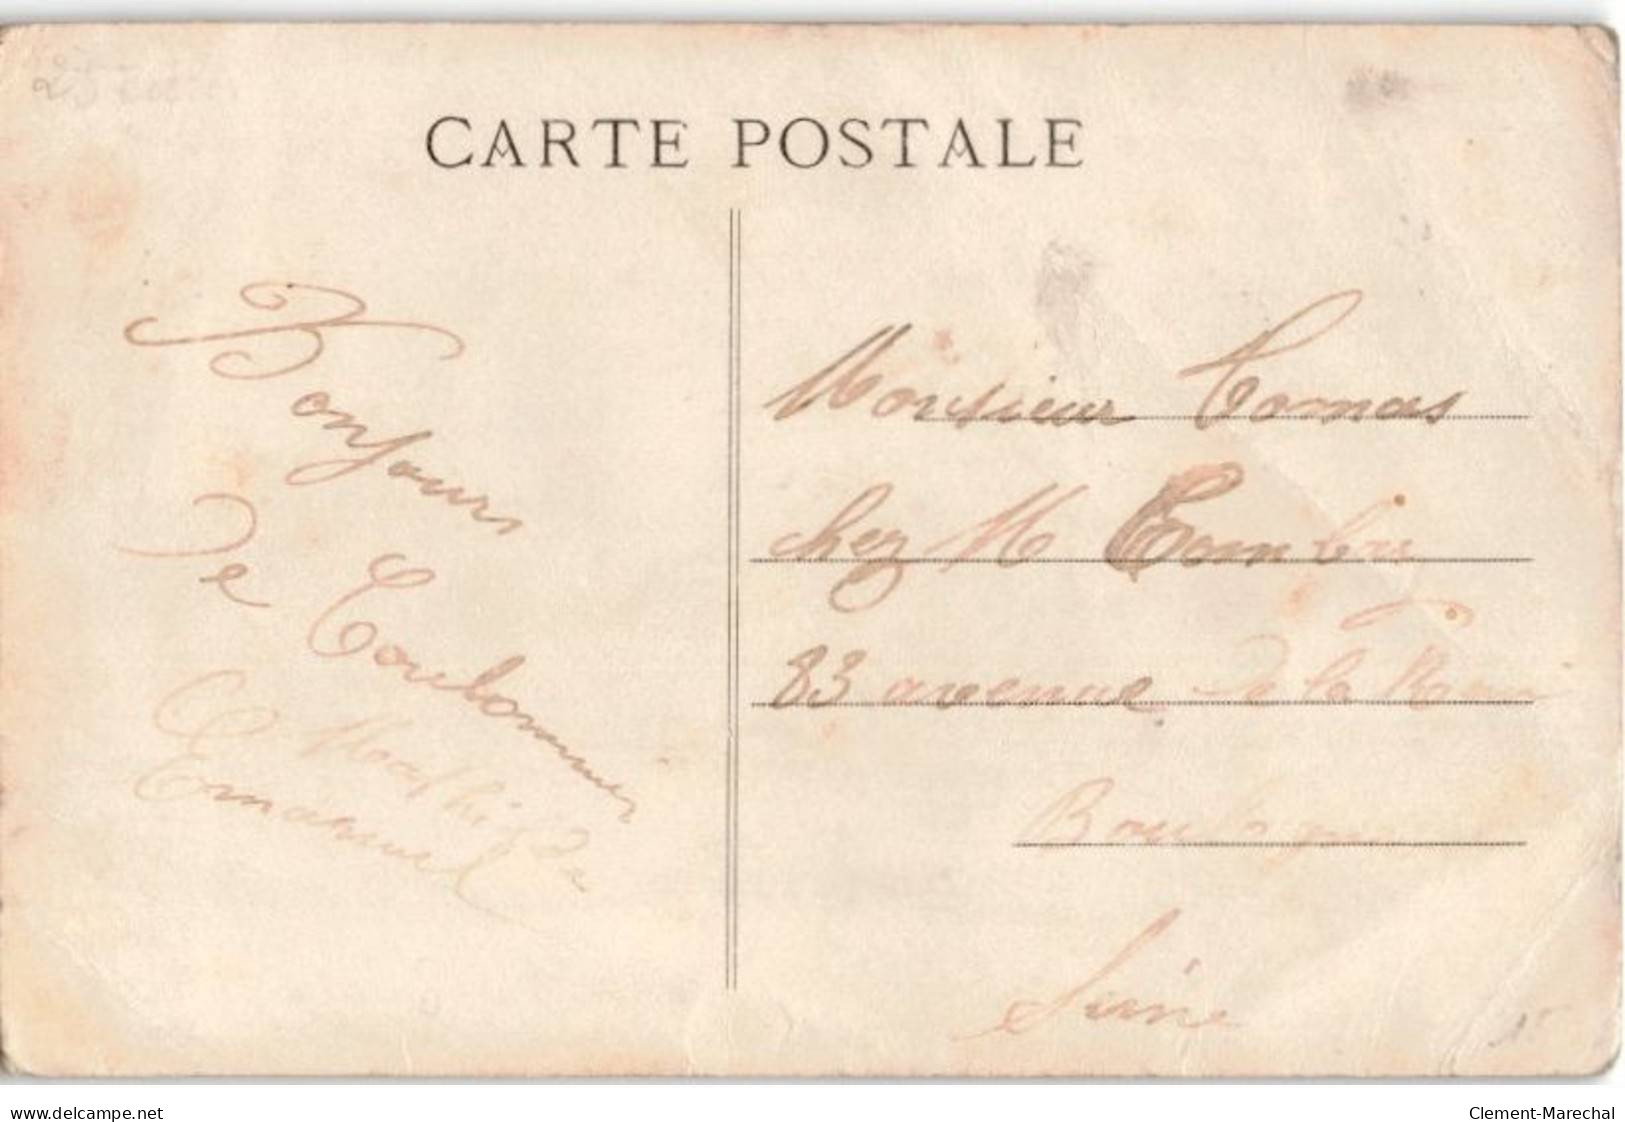 CARTE POSTALE
Bonjours
de Coulommier
Mathilde
Emanuel
Monsieur Comas
chez M
83 avenue de la Reine
Boulogne
Seine
www.delcampe.net
Clement-Marechal